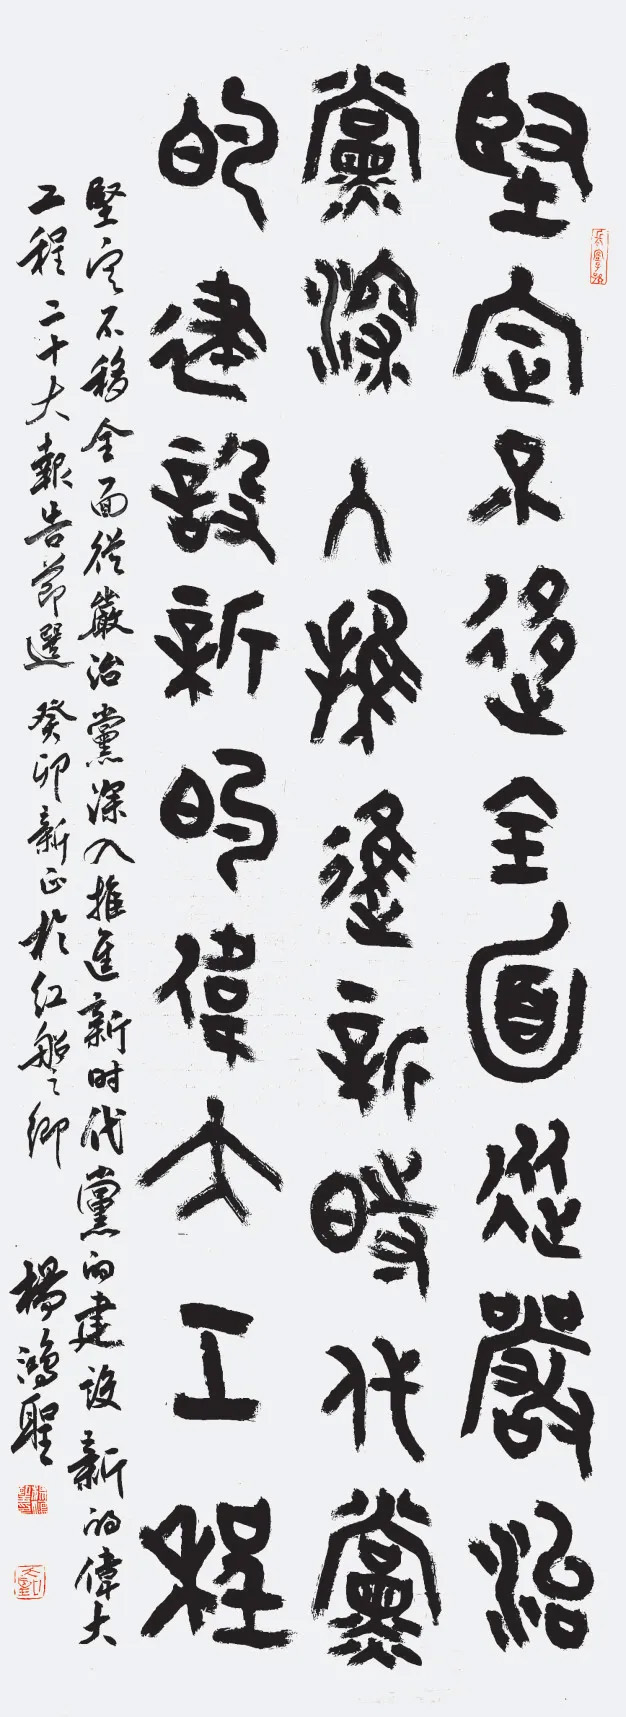 堅定不移全面從嚴治
黨深入推進新時代黨
的建設新的偉大工程
堅定不移全面從嚴治黨深入推進新时代黨的建設新的偉大
工程二十大報告節選癸卯新正於红船之鄉
楊鴻聖